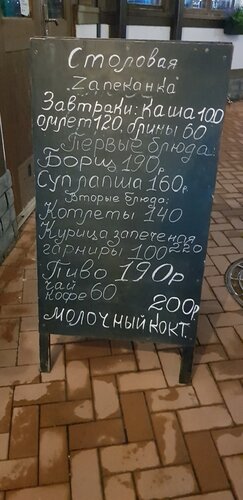 Столовая
Zапеканка
Завтраки: Каша 100
омлет 120, блины 60
Первые блюда:
Борщ 190р
Суп лапша 160р
Вторые блюда:
Котлеты 140
Курица запеченая 220
гарниры 100
Пиво 190р
чай
кофе 60
200р
молочный кокт.